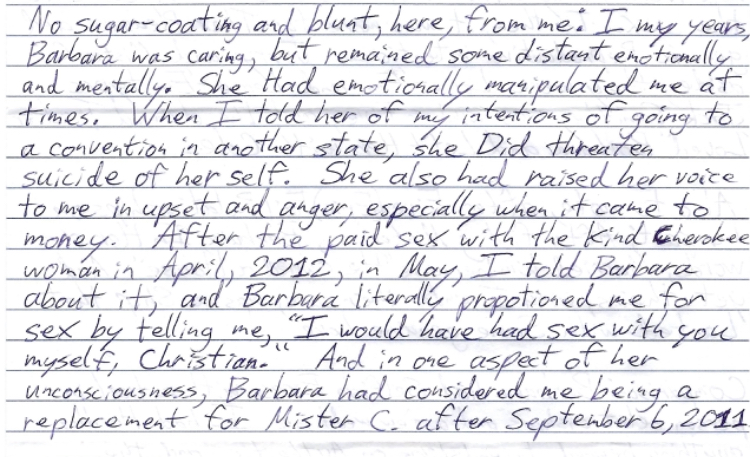 No sugar-coating and blunt, here, from me: I my years,
Barbara was caring, but remained some distant emotionally
and mentally. She Had emotionally manipulated me at
times. When I told her of my intentions of going to
a convention in another state, she Did threaten
suicide of her self. She also had raised her voice
to me in upset and anger, especially when it came to
money. After the paid sex with the kind Cherokee
woman in April, 2012, in May, I told Barbara
about it, and Barbara literally propotioned me for
sex by telling me, "I would have had sex with you
myself, Christian." And in one aspect of her
unconsciousness, Barbara had considered me being a
replacement for Mister C. after September 6, 2011